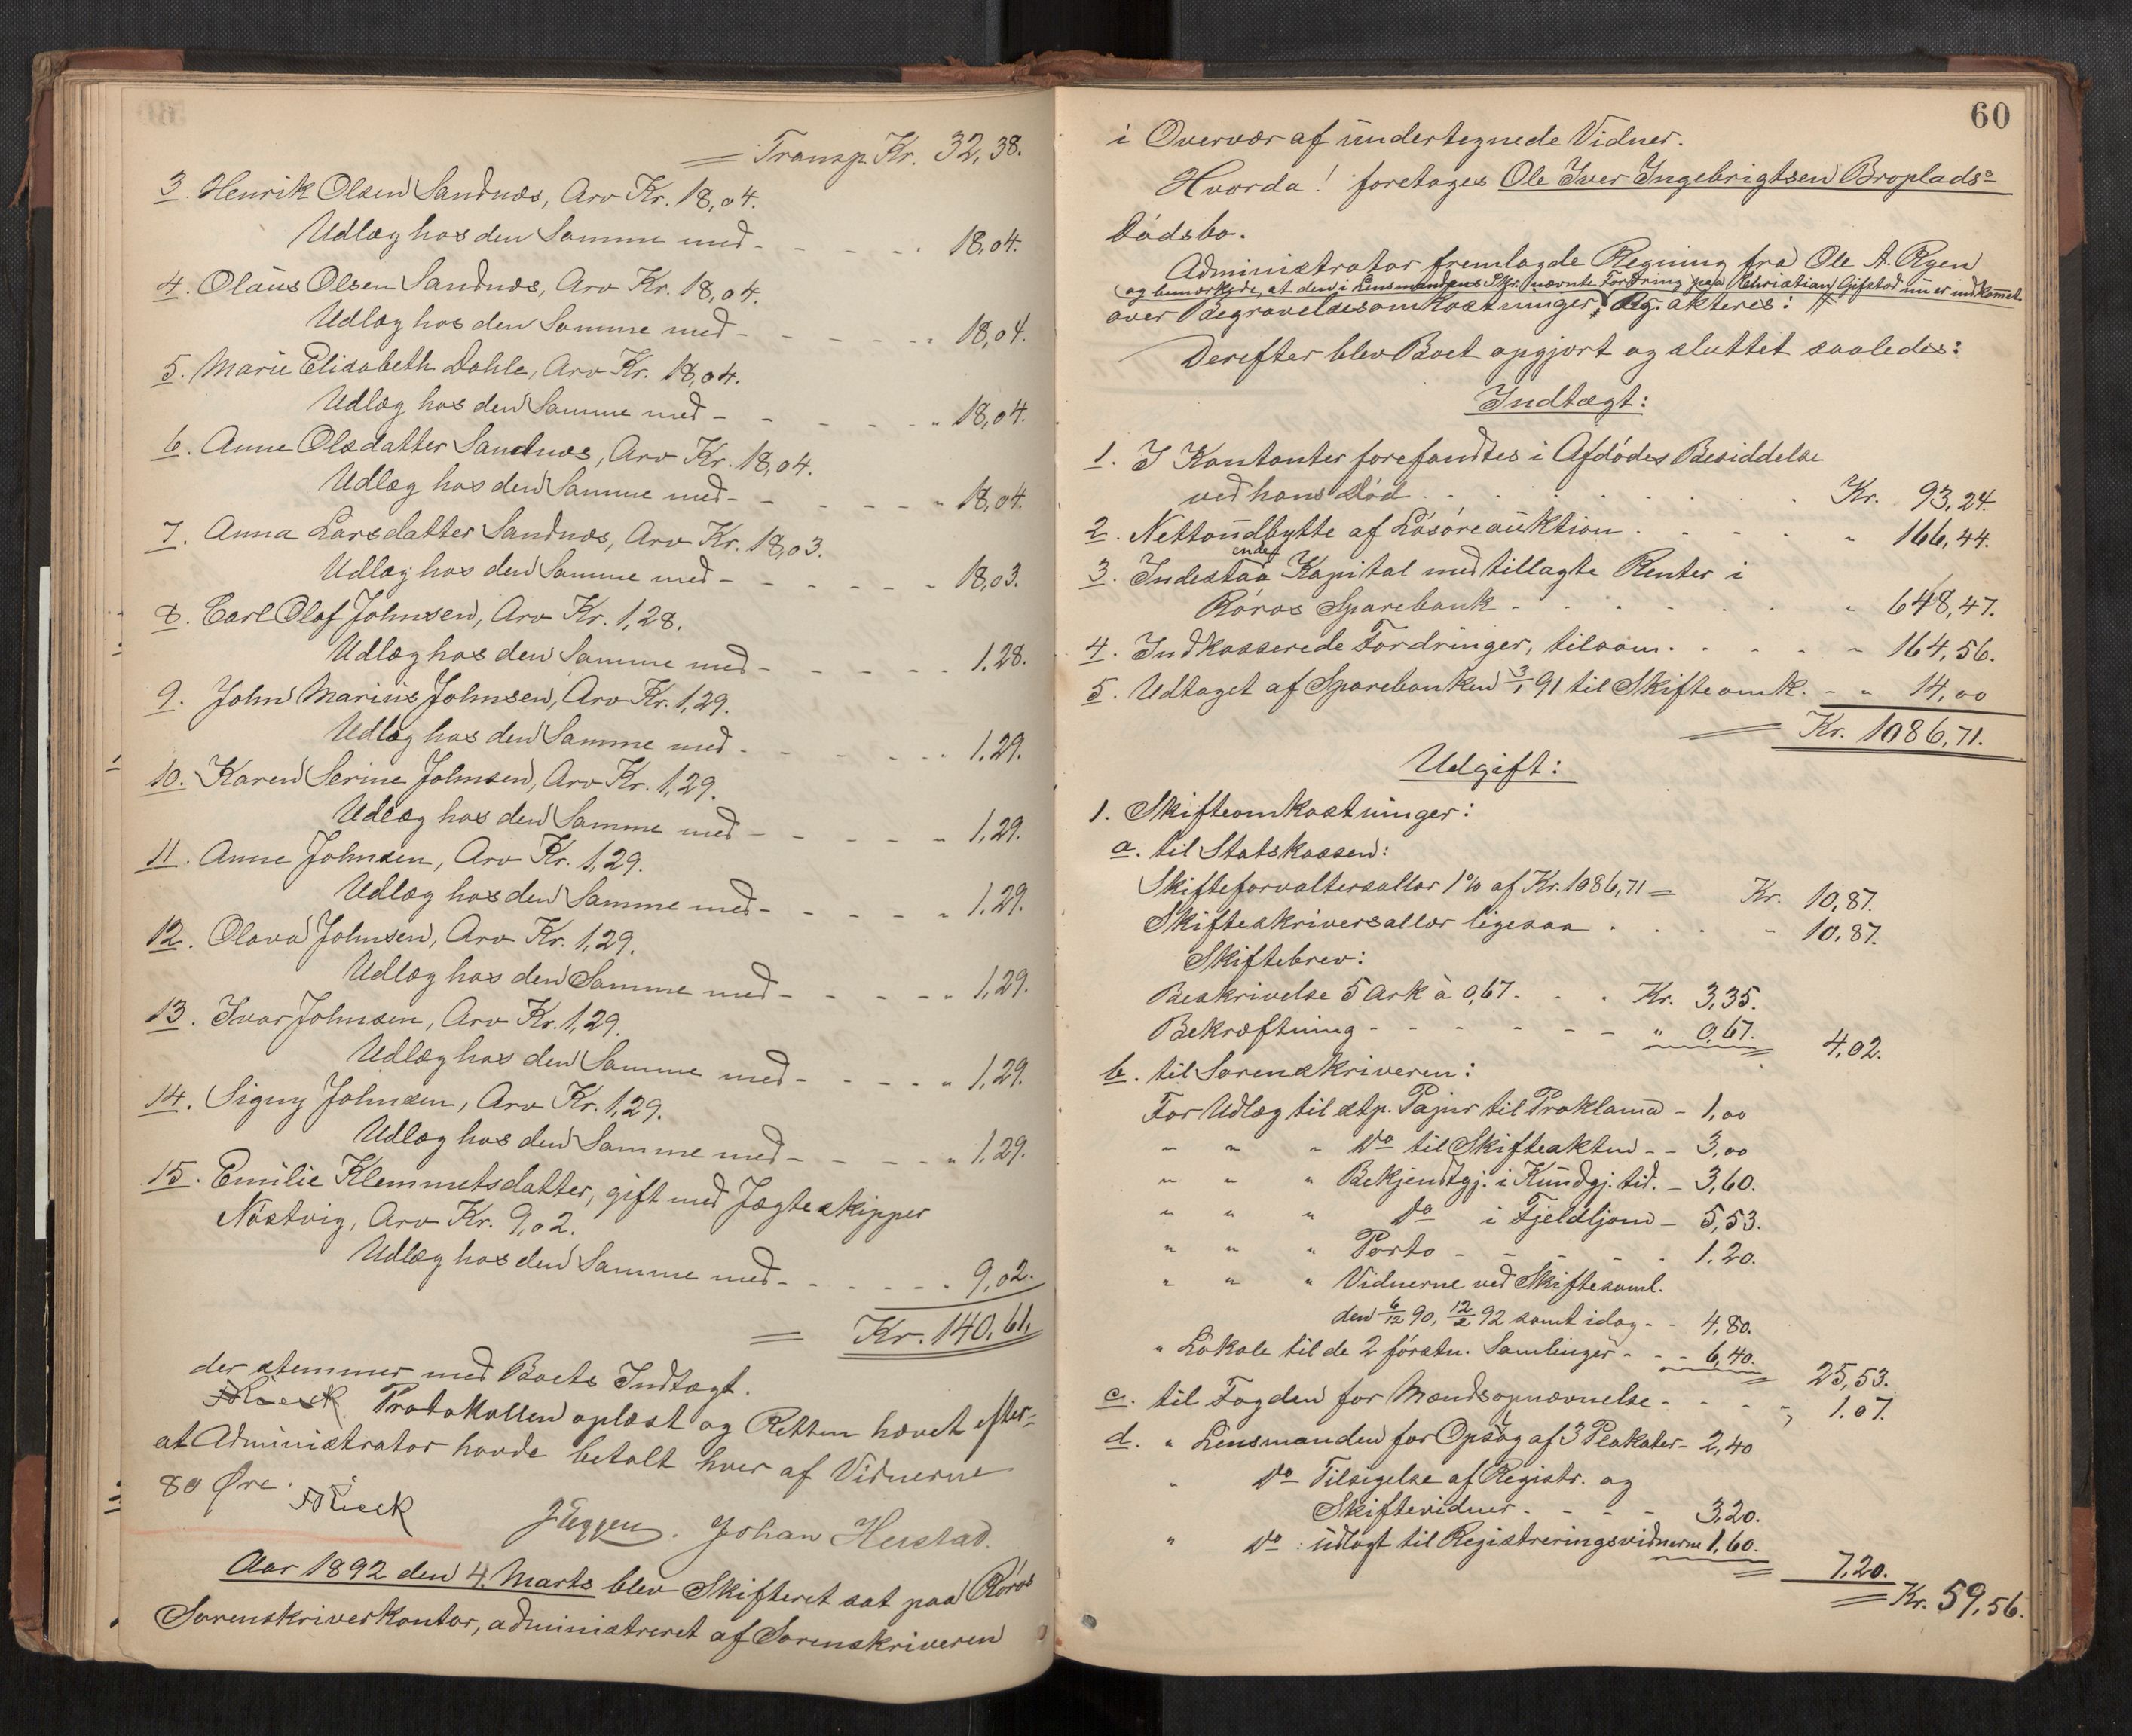 = Transp. Kr. 32,38.
3. Henrik Olsen Sandnæs, Arv Kr. 18,04.
Udlæg hos den Samme med - - - - - 18,04.
4. Olaus Olsen Sandnæs, Arv Kr. 18,04.
Udlæg hos den Samme med - - - - - " 18,04.
5. Marie Elisabeth Dahle, Arv Kr. 18,04.
Udlæg hos den Samme med - - - - - " 18,04.
6. Anne Olsdatter Sandnæs, Arv Kr. 18,04.
Udlæg hos den Samme med - - - - - " 18,04.
7. Anna Larsdatter Sandnæs, Arv Kr. 18,03.
Udlæg hos den Samme med - - - - - " 18,03.
8. Carl Olaf Johnsen, Arv Kr. 1,28.
Udlæg hos den Samme med - - - - - 1.28.
9. John Marius Johnsen, Arv Kr. 1,29.
Udlæg hos den Samme med - - - - - " 1.29.
10. Karen Serine Johnsen, Arv Kr. 1,29.
Udlæg hos den Samme med - - - - - " 1,29.
11. Anne Johnsen, Arv Kr. 1,29.
Udlæg hos den Samme med - - - - - " 1.29.
12. Olava Johnsen, Arv Kr. 1,29.
Udlæg hos den Samme med - - - - - " 1,29.
13. Ivar Johnsen, Arv Kr. 1,29.
Udlæg hos den Samme med - - - - - " 1,29.
14. Signy Johnsen, Arv Kr. 1,29.
Udlæg hos den Samme med - - - - - " 1,29.
15. Emilie Klemmetsdatter, gift med Jægteskipper
Nöstvig, Arv Kr. 9,02.
Udlæg hos den Samme med - - - - - " 9,02.
= Kr. 140,61.
der stemmer med Boets Indtægt.
Protokollen oplæst og Retten hævet efter=
at Administrator havde betalt hver af Vidnerne
80 Øre.
JEggen. Johan Herstad.
Aar 1892 den 4. Marts blev Skifteret sat paa Röros
Sorenskriverkontor, administreret af Sorenskriveren
60
i Overvær af undertegnede Vidner.
Hvorda! foretoges Ole Iver Ingebrigtsen Broplads=
Dödsbo.
Administrator fremlagde Regning fra Ole A. Ryen
og bemærkede, at den i Lensmandens Skr. nævnte Fordring paa Christian Gifstad nu er indkommet.
over Begravelsesomkostninger; Reg. akteres: #
Derefter blev Boet opgjort og sluttet saaledes:
Indtægt:
1. I Kontanter forefandtes i Afdödes Besiddelse
ved hans Död . . . . . . . . Kr. 93,24.
2. Nettoudbytte af Lösöreauktion . . . . " 166,44.
ende
3. Indestaa Kapital med tillagte Renter i
Röros Sparebank - . . . . . . " 648,47.
4. Indkasserede Fordringer, tilsam. . . . . " 164,56.
5. Udtaget af Sparebanken 3/1 91 til Skifteomk. - " 14,00
= Kr. 1086,71.
Udgift:
1. Skifteomkostninger:
a. til Statskassen:
Skifteforvaltersallær 1% af Kr. 1086,71 = Kr. 10,87.
Skifteskriversallær ligesaa . . . . " 10.87.
Skiftebrev:
Beskrivelse 5 Ark à 0,67 - . . Kr. 3,35.
Bekræftning - - - - - - - " 0,67. 4,02.
b. til Sorenskriveren:
For Udlæg til stp. Papir til Proklama - 1,00
" " " Do til Skifteakten - - 3,00
" " " Bekjendtgj. i Kundgj. tid. - 3,60.
" " " Do i Fjeldljom - 5,53.
" " " Porto - - - - - . 1,20.
" " " Vidnerne ved Skiftesaml.
den 6/12 90, 12/2 92 samt idag - - 4,80.
" Lokale til de 2 förstn. Samlinger - - - 6,40. 25,53.
c. til Fogden for Mandsopnævnelse - - - - " 1.07.
d. " Lensmanden for Opslag af 3 Plakater - 2,40
" Do Tilsigelse af Registr. og
Skiftevidner - - - - - 3,20.
" Do : udlagt til Registreringsvidnerne 1,60. 7,20.
= Kr. 59,56.